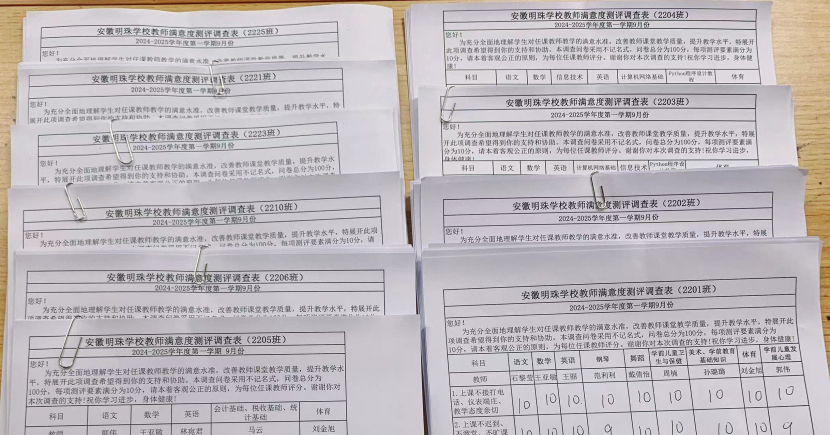 安徽明珠学校教师满意度测评调查表（2225班）
2024-2025学年度第一学期9月份
您好！
为充分全面地理解学生对任课教师教学的满意水准，改善教师课堂教学质量，提升教学水平
安徽明珠学校教师满意度测评调查表（2221班）
2024-2025学年度第一学期9月份
您好！
为充分全面地理解学生对任课教师教学的满意水准，改善教师课堂教学质量，提升教学水平，特
安徽明珠学校教师满意度测评调查表（2223班）
2024-2025学年度第一学期9月份
您好！
为充分全面地理解学生对任课教师教学的满意水准，改善教师课堂教学质量，提升教学水平
安徽明珠学校教师满意度测评调查表（2210班）
2024-2025学年度第一学期9月份
您好！
为充分全面地理解学生对任课教师教学的满意水准，改善教师课堂教学质量，提升教学水平，特展开此项
调查希望得到你的支持和协助。本调查问卷采用不记名式，问卷总分为100分，每项测评要素满分为10分，请
安徽明珠学校教师满意度测评调查表（2206班）
2024-2025学年度第一学期9月份
您好！
为充分全面地理解学生对任课教师教学的满意水准，改善教师课堂教学质量，提升教学水平，特展开此
安徽明珠学校教师满意度测评调查表（2205班）
2024-2025学年度第一学期 9月份
您好！
为充分全面地理解学生对任课教师教学的满意水准，改善教师课堂教学质量，提升教学水
平，特展开此项调查希望得到你的支持和协助。本调查问卷采用不记名式，问卷总分为
100分，每项测评要素满分为10分，请本着客观公正的原则，为每位任课教师评分，谢谢你对
本次调查的支持！祝你学习进步，身体健康！
科目 语文 数学 英语 会计基础、税收基础、统计基础 体育
教师 郭伟 王亚敏 林宛君 马云 刘金旭
安徽明珠学校教师满意度测评调查表（2204班）
2024-2025学年度第一学期9月份
您好！
为充分全面地理解学生对任课教师教学的满意水准，改善教师课堂教学质量，提升教学水平，特展开
此项调查希望得到你的支持和协助。本调查问卷采用不记名式，问卷总分为100分，每项测评要素满分为
10分，请本着客观公正的原则，为每位任课教师评分，谢谢你对本次调查的支持！祝你学习进步，身体健
康！
科目 语文 数学 信息技术 英语 计算机网络基础 Python程序设计教程 体育
安徽明珠学校教师满意度测评调查表（2203班）
2024-2025学年度第一学期9月份
您好！
为充分全面地理解学生对任课教师教学的满意水准，改善教师课堂教学质量，提升教学水平，特展
开此项调查希望得到你的支持和协助。本调查问卷采用不记名式，问卷总分为100分，每项测评要素满
分为10分，请本着客观公正的原则，为每位任课教师评分，谢谢你对本次调查的支持！祝你学习进步，
身体健康！
科目 语文 数学 英语 计算机网络基础 信息技术 Python程序设 体育
安徽明珠学校教师满意度测评调查表（2202班）
2024-2025学年度第一学期9月份
您好！
为充分全面地理解学生对任课教师教学的满意水准，改善教师课堂教学质量，提升教学水平，特展
安徽明珠学校教师满意度测评调查表（2201班）
2024-2025学年度第一学期9月份
您好！
为充分全面地理解学生对任课教师教学的满意水准，改善教师课堂教学质量，提升教学水平，特展开此
项调查希望得到你的支持和协助。本调查问卷采用不记名式，问卷总分为100分，每项测评要素满分为
10分，请本着客观公正的原则，为每位任课教师评分，谢谢你对本次调查的支持！祝你学习进步，身体健康！
科目 语文 数学 英语 钢琴 舞蹈 学前儿童卫生与保健 美术、学前教育基础知识 体育 学前儿童发展心理
教师 石黎莹 王亚敏 王丽 范利利 戴倩怡 周楠 孙璐璐 刘金旭 郭伟
1.上课不接打电话、仪表端庄、教学态度亲切 10 10 10 10 10 10 10 10 10
2.上课不迟到、不罢堂、不旷课 10 10 10 9 10 10 10 9